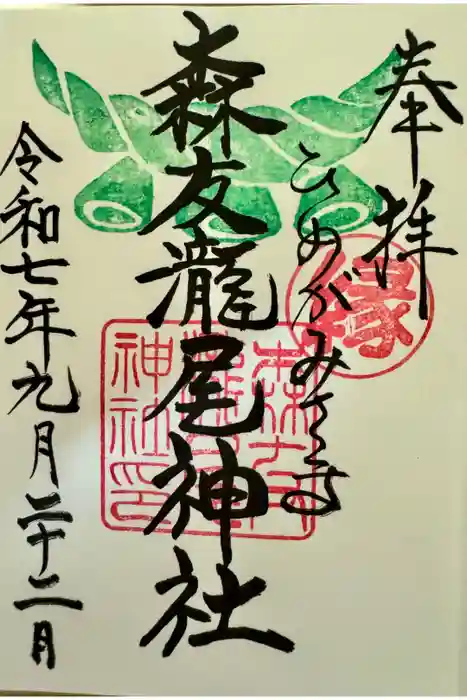 奉拝
縁
ひめがみさま
森友瀧尾神社
神社印
令和七年九月二十二月